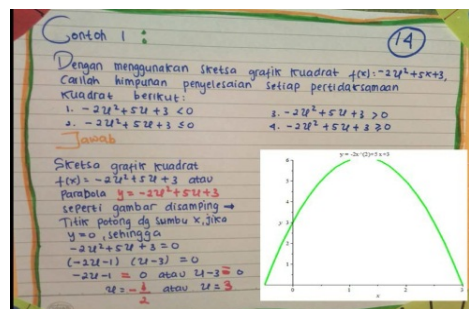 Contoh 1 :
14
Dengan menggunakan sketsa grafik kuadrat f(x):-2x²+5x+3,
Carilah himpunan penyelesaian setiap pertidaksamaan
Kuadrat berikut:
1. -2x²+5x+3 <0
2. -2x²+5x+3 ≤0
3. -2x²+5x+3 >0
4. -2x²+5x+3 ≥0
Jawab
Sketsa grafik kuadrat
f(x) = -2x²+5x+3 atau
Parabola y = -2x²+5x+3
seperti gambar disamping →
Titik potong dg sumbu x, jika
y=0, sehingga
-2x²+5x+3=0
(-2x-1) (x-3) =0
-2x-1 = 0 atau x-3=0
x=-1/2 atau x=3
y = -2x^(2)+5 x+3
6
5
4
3
2
1
y
0
1
2
3
x